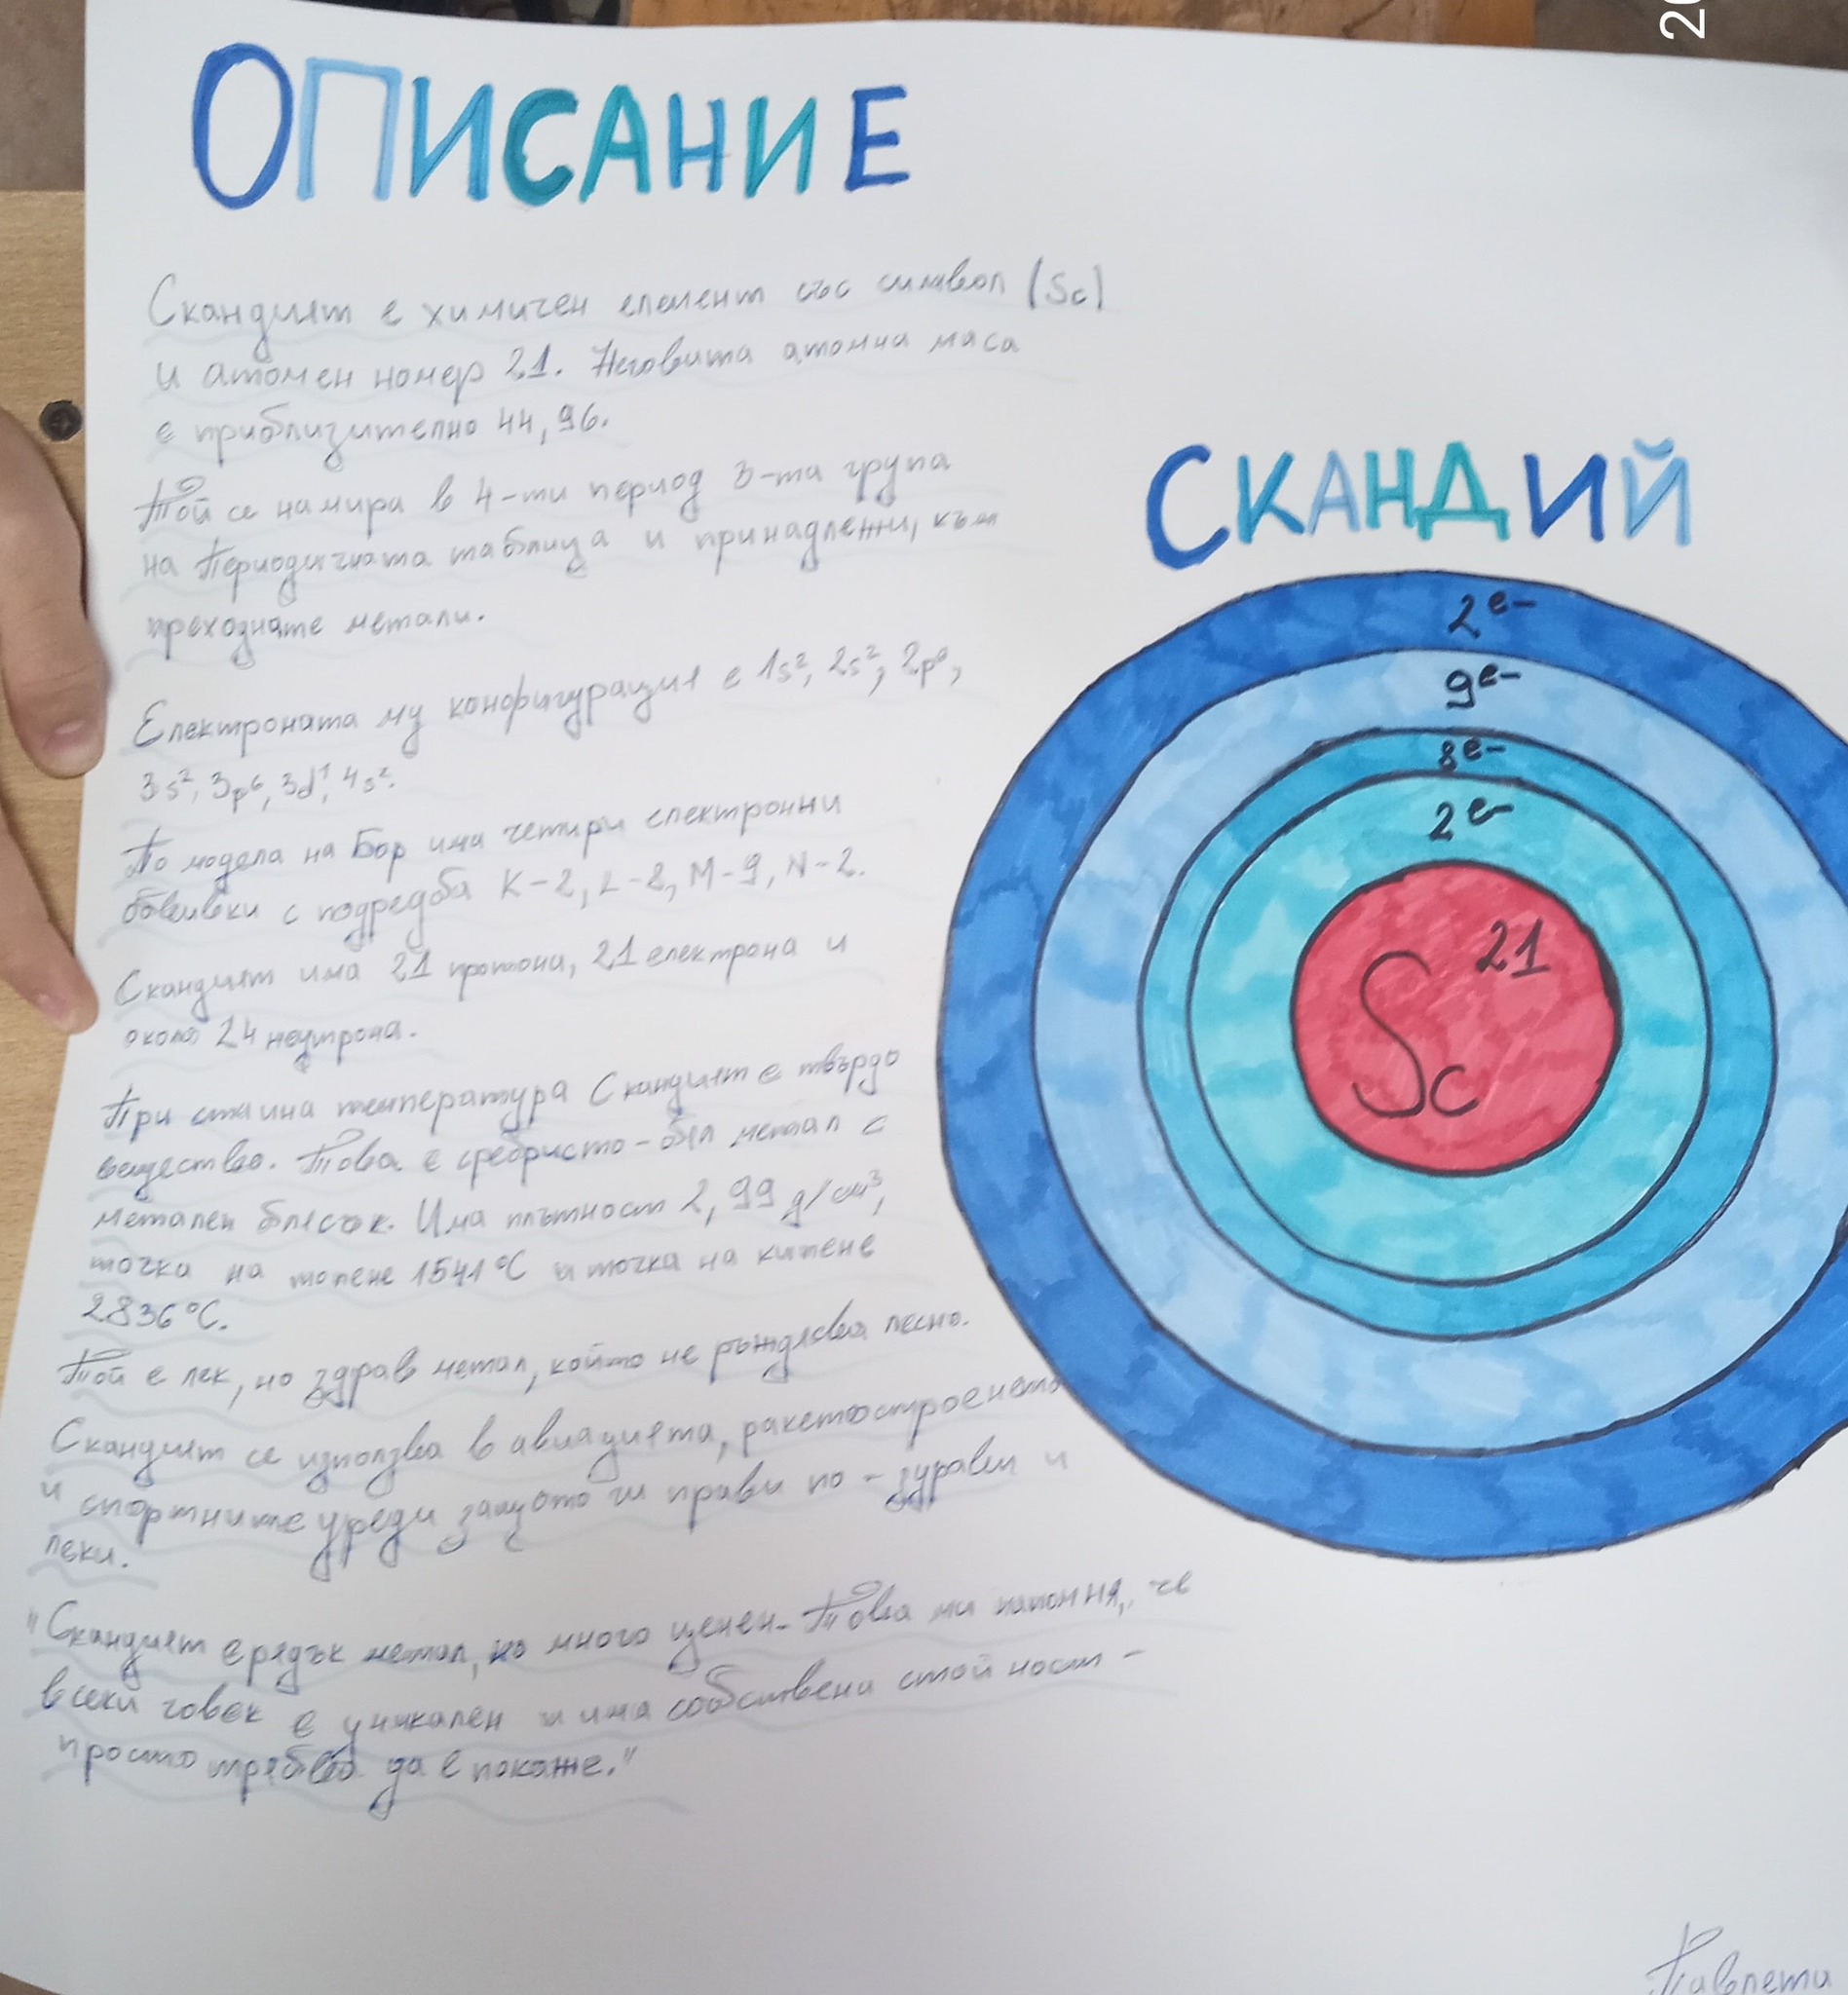 ОПИСАНИЕ
Скандият е химичен елемент със символ (Sc)
и атомен номер 21. Неговита атомна маса
е приблизително 44,96.
Той се намира в 4-ти период 3-та група
на Периодичната таблица и принадлежи, към
преходнате метали.
Електроната му конфигурация е 1s², 2s², 2p⁶,
3s², 3p⁶, 3d¹, 4s².
По модела на Бор има четири електронни
обвивки с подредба K-2, L-8, M-9, N-2.
Скандият има 21 протона, 21 електрона и
около 24 неутрона.
При стаина температура Скандият е твърдо
вещество. Това е сребристо-бял метал с
метален блясък. Има плътност 2,99 g/см³,
точка на топене 1541°C и точка на кипене
2836°C.
Той е лек, но здрав метал, който не ръждясва лесно.
Скандият се използва в авиацията, ракетостроенето
и спортните уреди защото ги прави по-здрави и
леки.
"Скандият е рядък метал, но много ценен. Това ми напомня, че
всеки човек е уникален и има собствена стойност -
просто трябва да е покаже."
СКАНДИЙ
2e-
9e-
8e-
2e-
21
Sc
Павлети
20